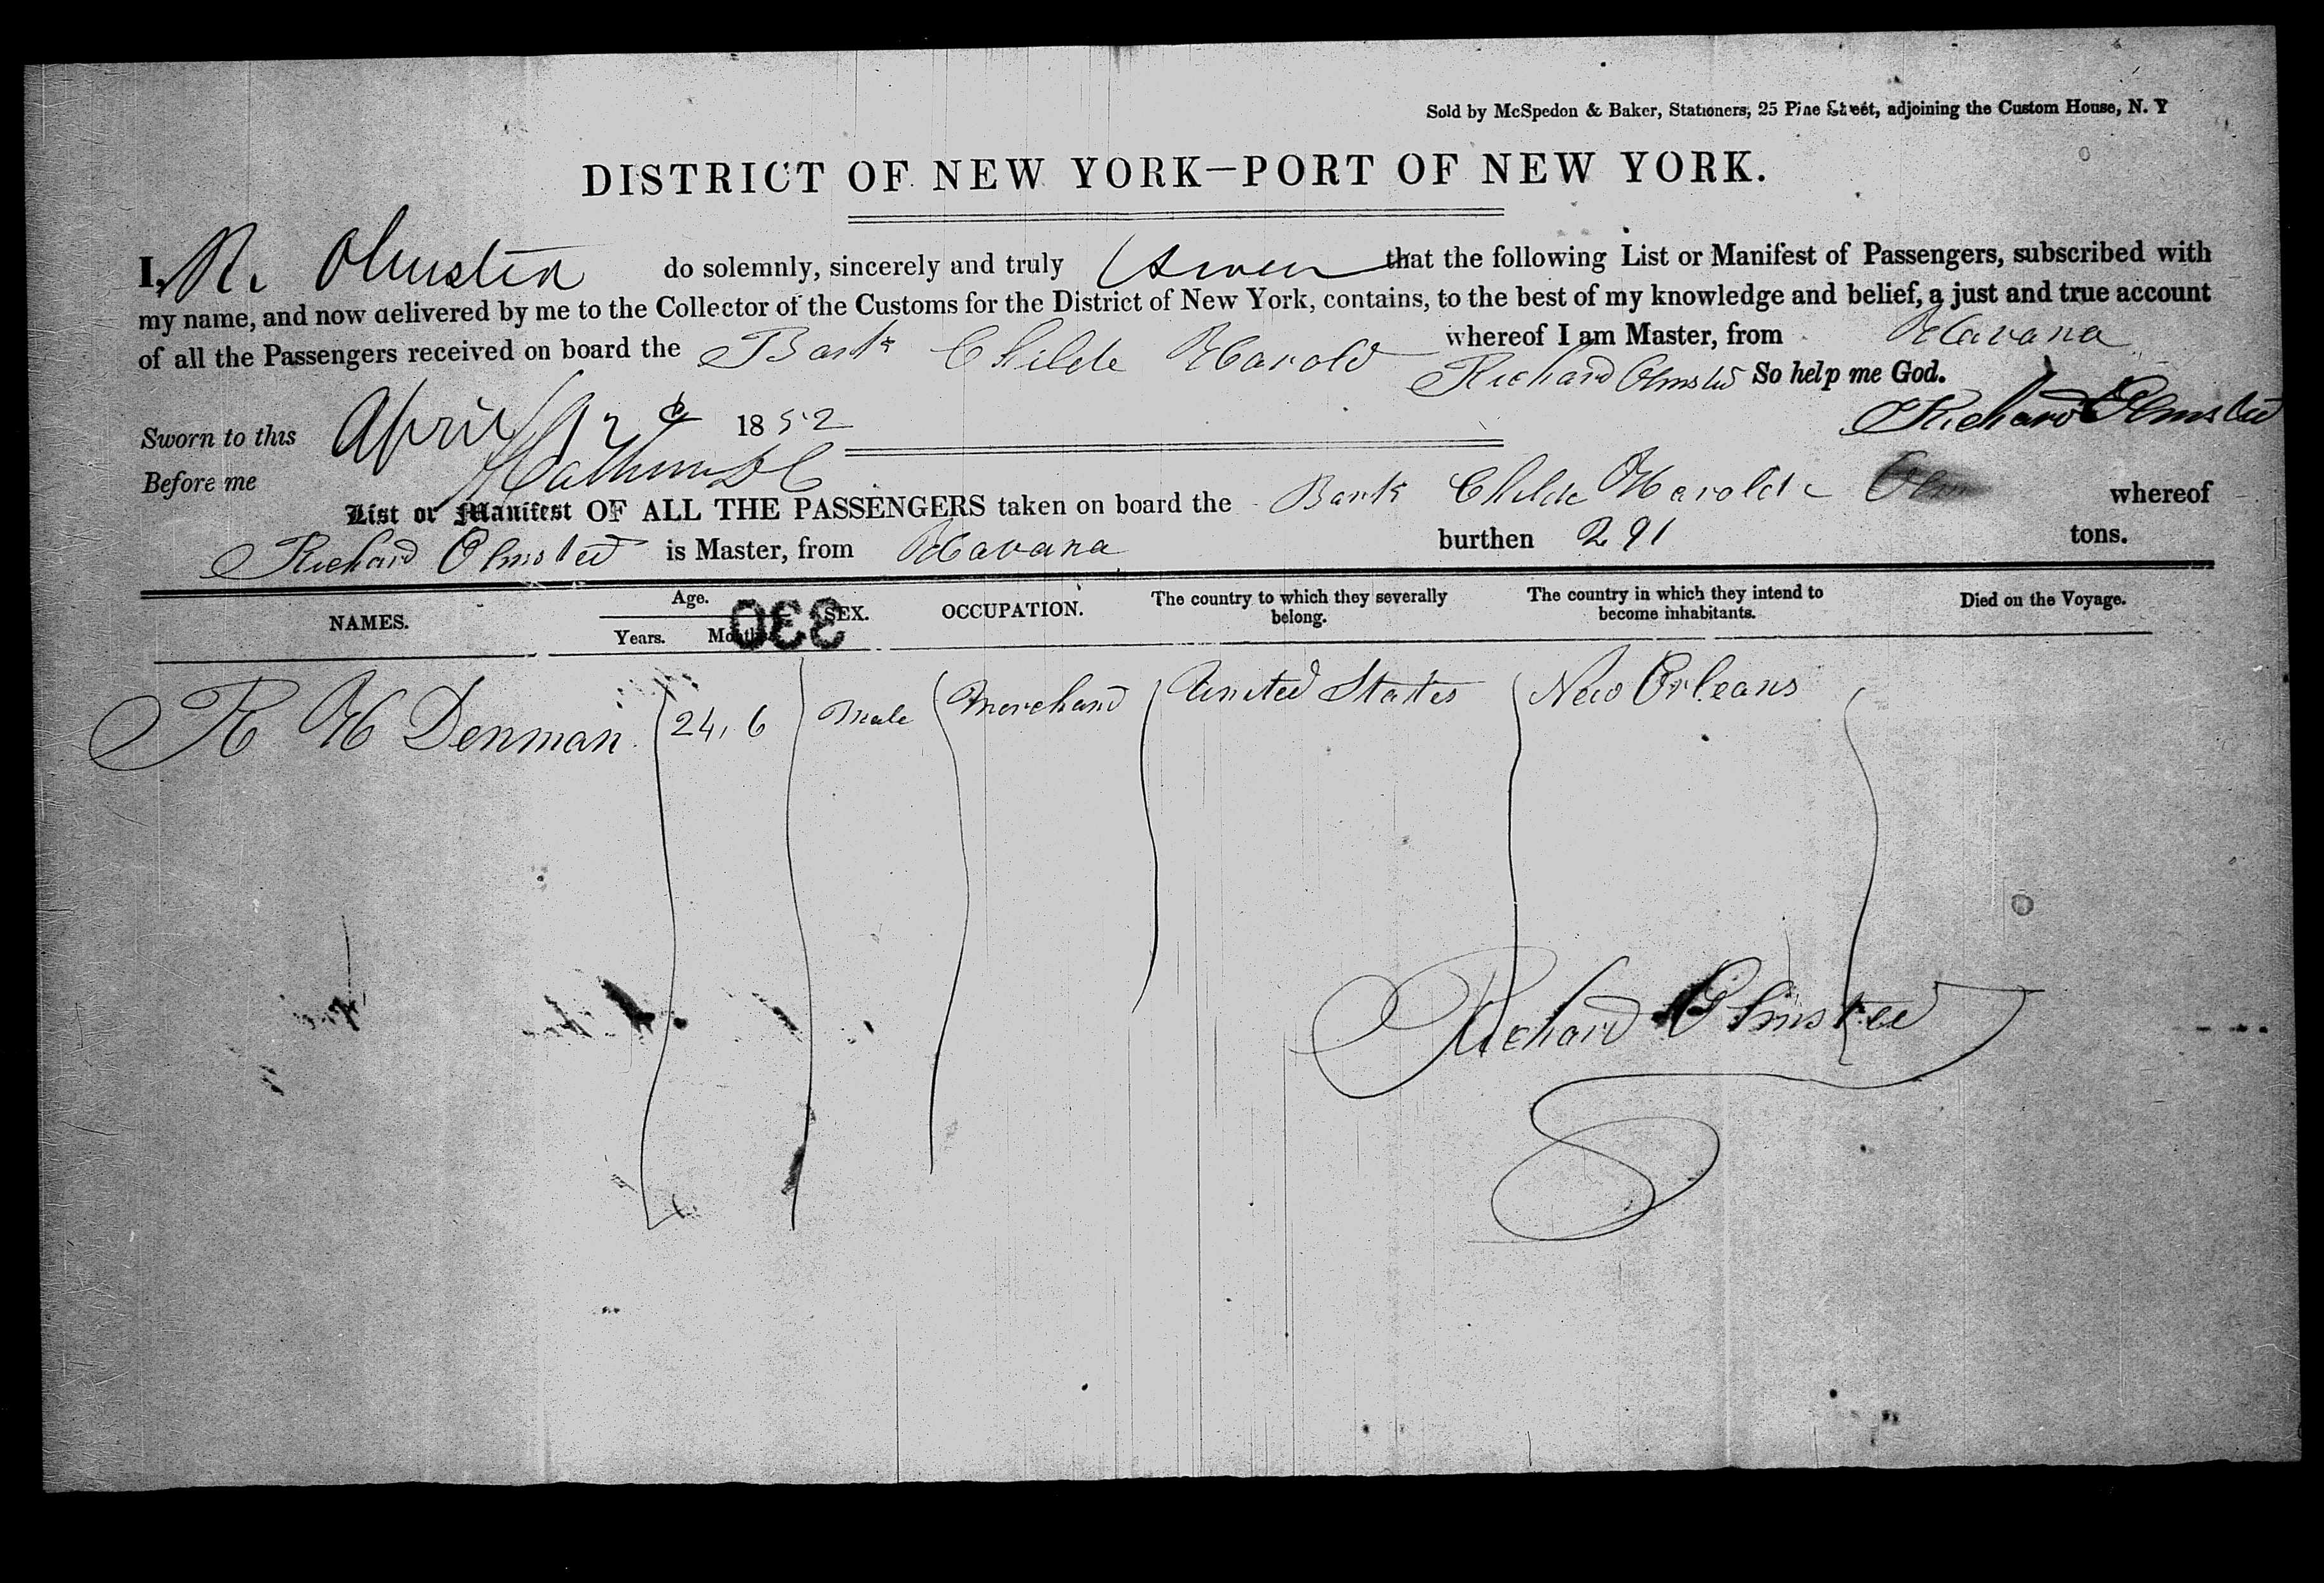 Sold by McSpedon & Baker, Stationers, 25 Pine Street, adjoining the Custom House, N. Y
DISTRICT OF NEW YORK—PORT OF NEW YORK.
I, R. Olmsted do solemnly, sincerely and truly Swear that the following List or Manifest of Passengers, subscribed with
my name, and now delivered by me to the Collector of the Customs for the District of New York, contains, to the best of my knowledge and belief, a just and true account
of all the Passengers received on board the Bark Childe Harold whereof I am Master, from Havana
Richard Olmsted So help me God.
Richard Olmsted
Sworn to this April 1852
Before me
List or Manifest OF ALL THE PASSENGERS taken on board the Bark Childe Harold whereof
Richard Olmsted is Master, from Havana burthen 291 tons.
NAMES. Age. Years. Months. SEX. OCCUPATION. The country to which they severally belong. The country in which they intend to become inhabitants. Died on the Voyage.
330
R H Denman 24, 6 Male Merchand United States New Orleans
Richard Olmsted